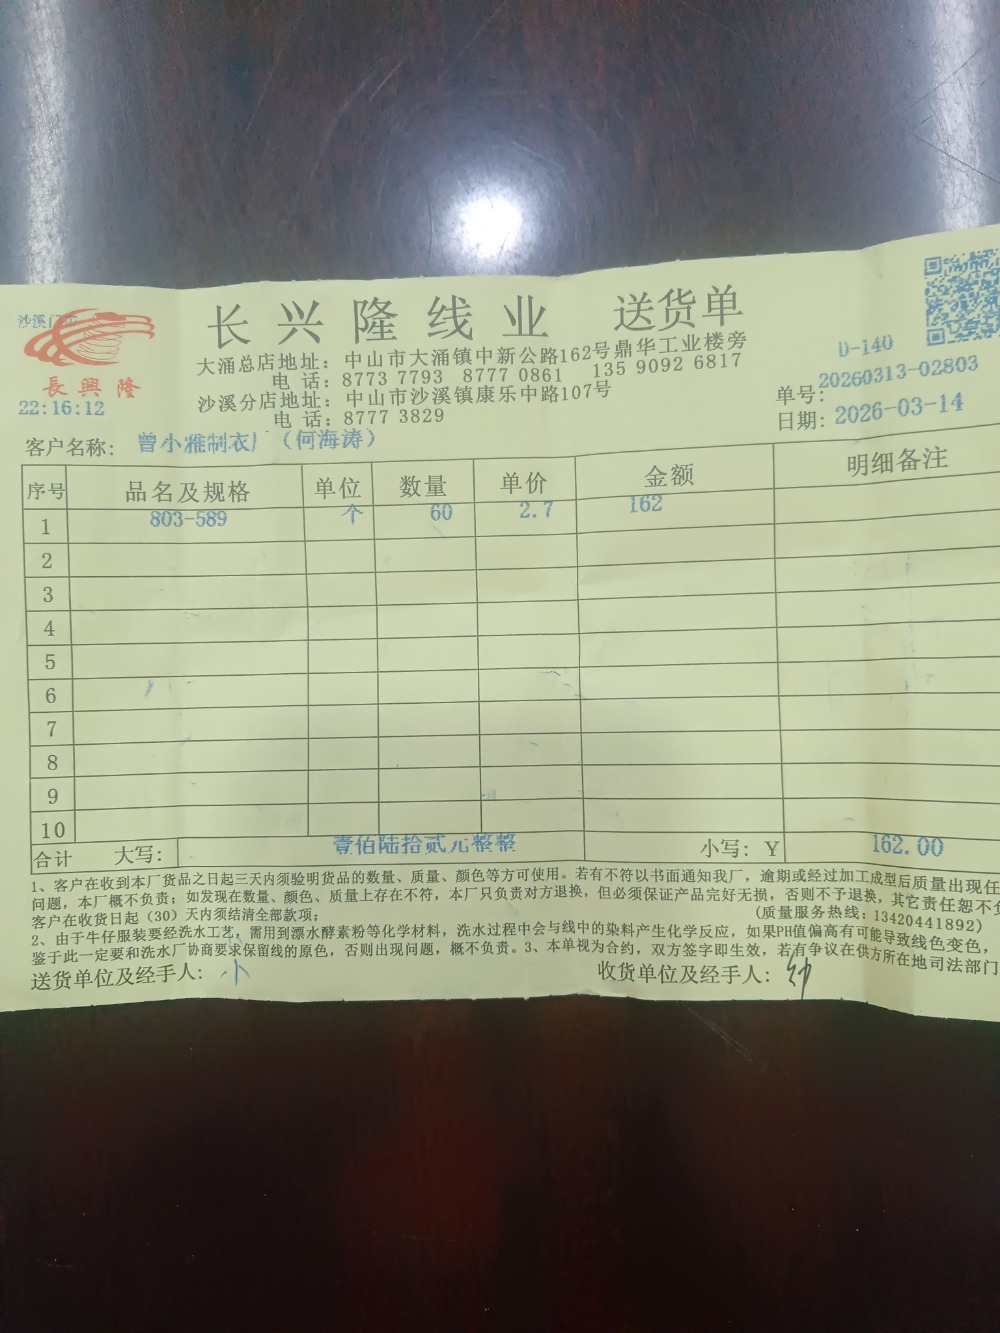 沙溪门市
長興隆
22:16:12
长兴隆线业 送货单
大涌总店地址：中山市大涌镇中新公路162号鼎华工业楼旁
电 话：8773 7793 8777 0861 135 9092 6817
沙溪分店地址：中山市沙溪镇康乐中路107号
电 话：8777 3829
D-140
单号：20260313-02803
日期：2026-03-14
客户名称：曾小雅制衣厂（何海涛）
序号 品名及规格 单位 数量 单价 金额 明细备注
1 803-589 个 60 2.7 162
2
3
4
5
6
7
8
9
10
合计 大写：壹佰陆拾贰元整整 小写：￥ 162.00
1、客户在收到本厂货品之日起三天内须验明货品的数量、质量、颜色等方可使用。若有不符以书面通知我厂，逾期或经过加工成型后质量出现任
问题，本厂概不负责；如发现在数量、颜色、质量上存在不符，本厂只负责对方退换，但必须保证产品完好无损，否则不予退换，其它责任恕不负
客户在收货日起（30）天内须结清全部款项；（质量服务热线：13420441892）
2、由于牛仔服装要经洗水工艺，需用到漂水酵素粉等化学材料，洗水过程中会与线中的染料产生化学反应，如果PH值偏高有可能导致线色变色，
鉴于此一定要和洗水厂协商要求保留线的原色，否则出现问题，概不负责。3、本单视为合约，双方签字即生效，若有争议在供方所在地司法部门
送货单位及经手人：小 收货单位及经手人：